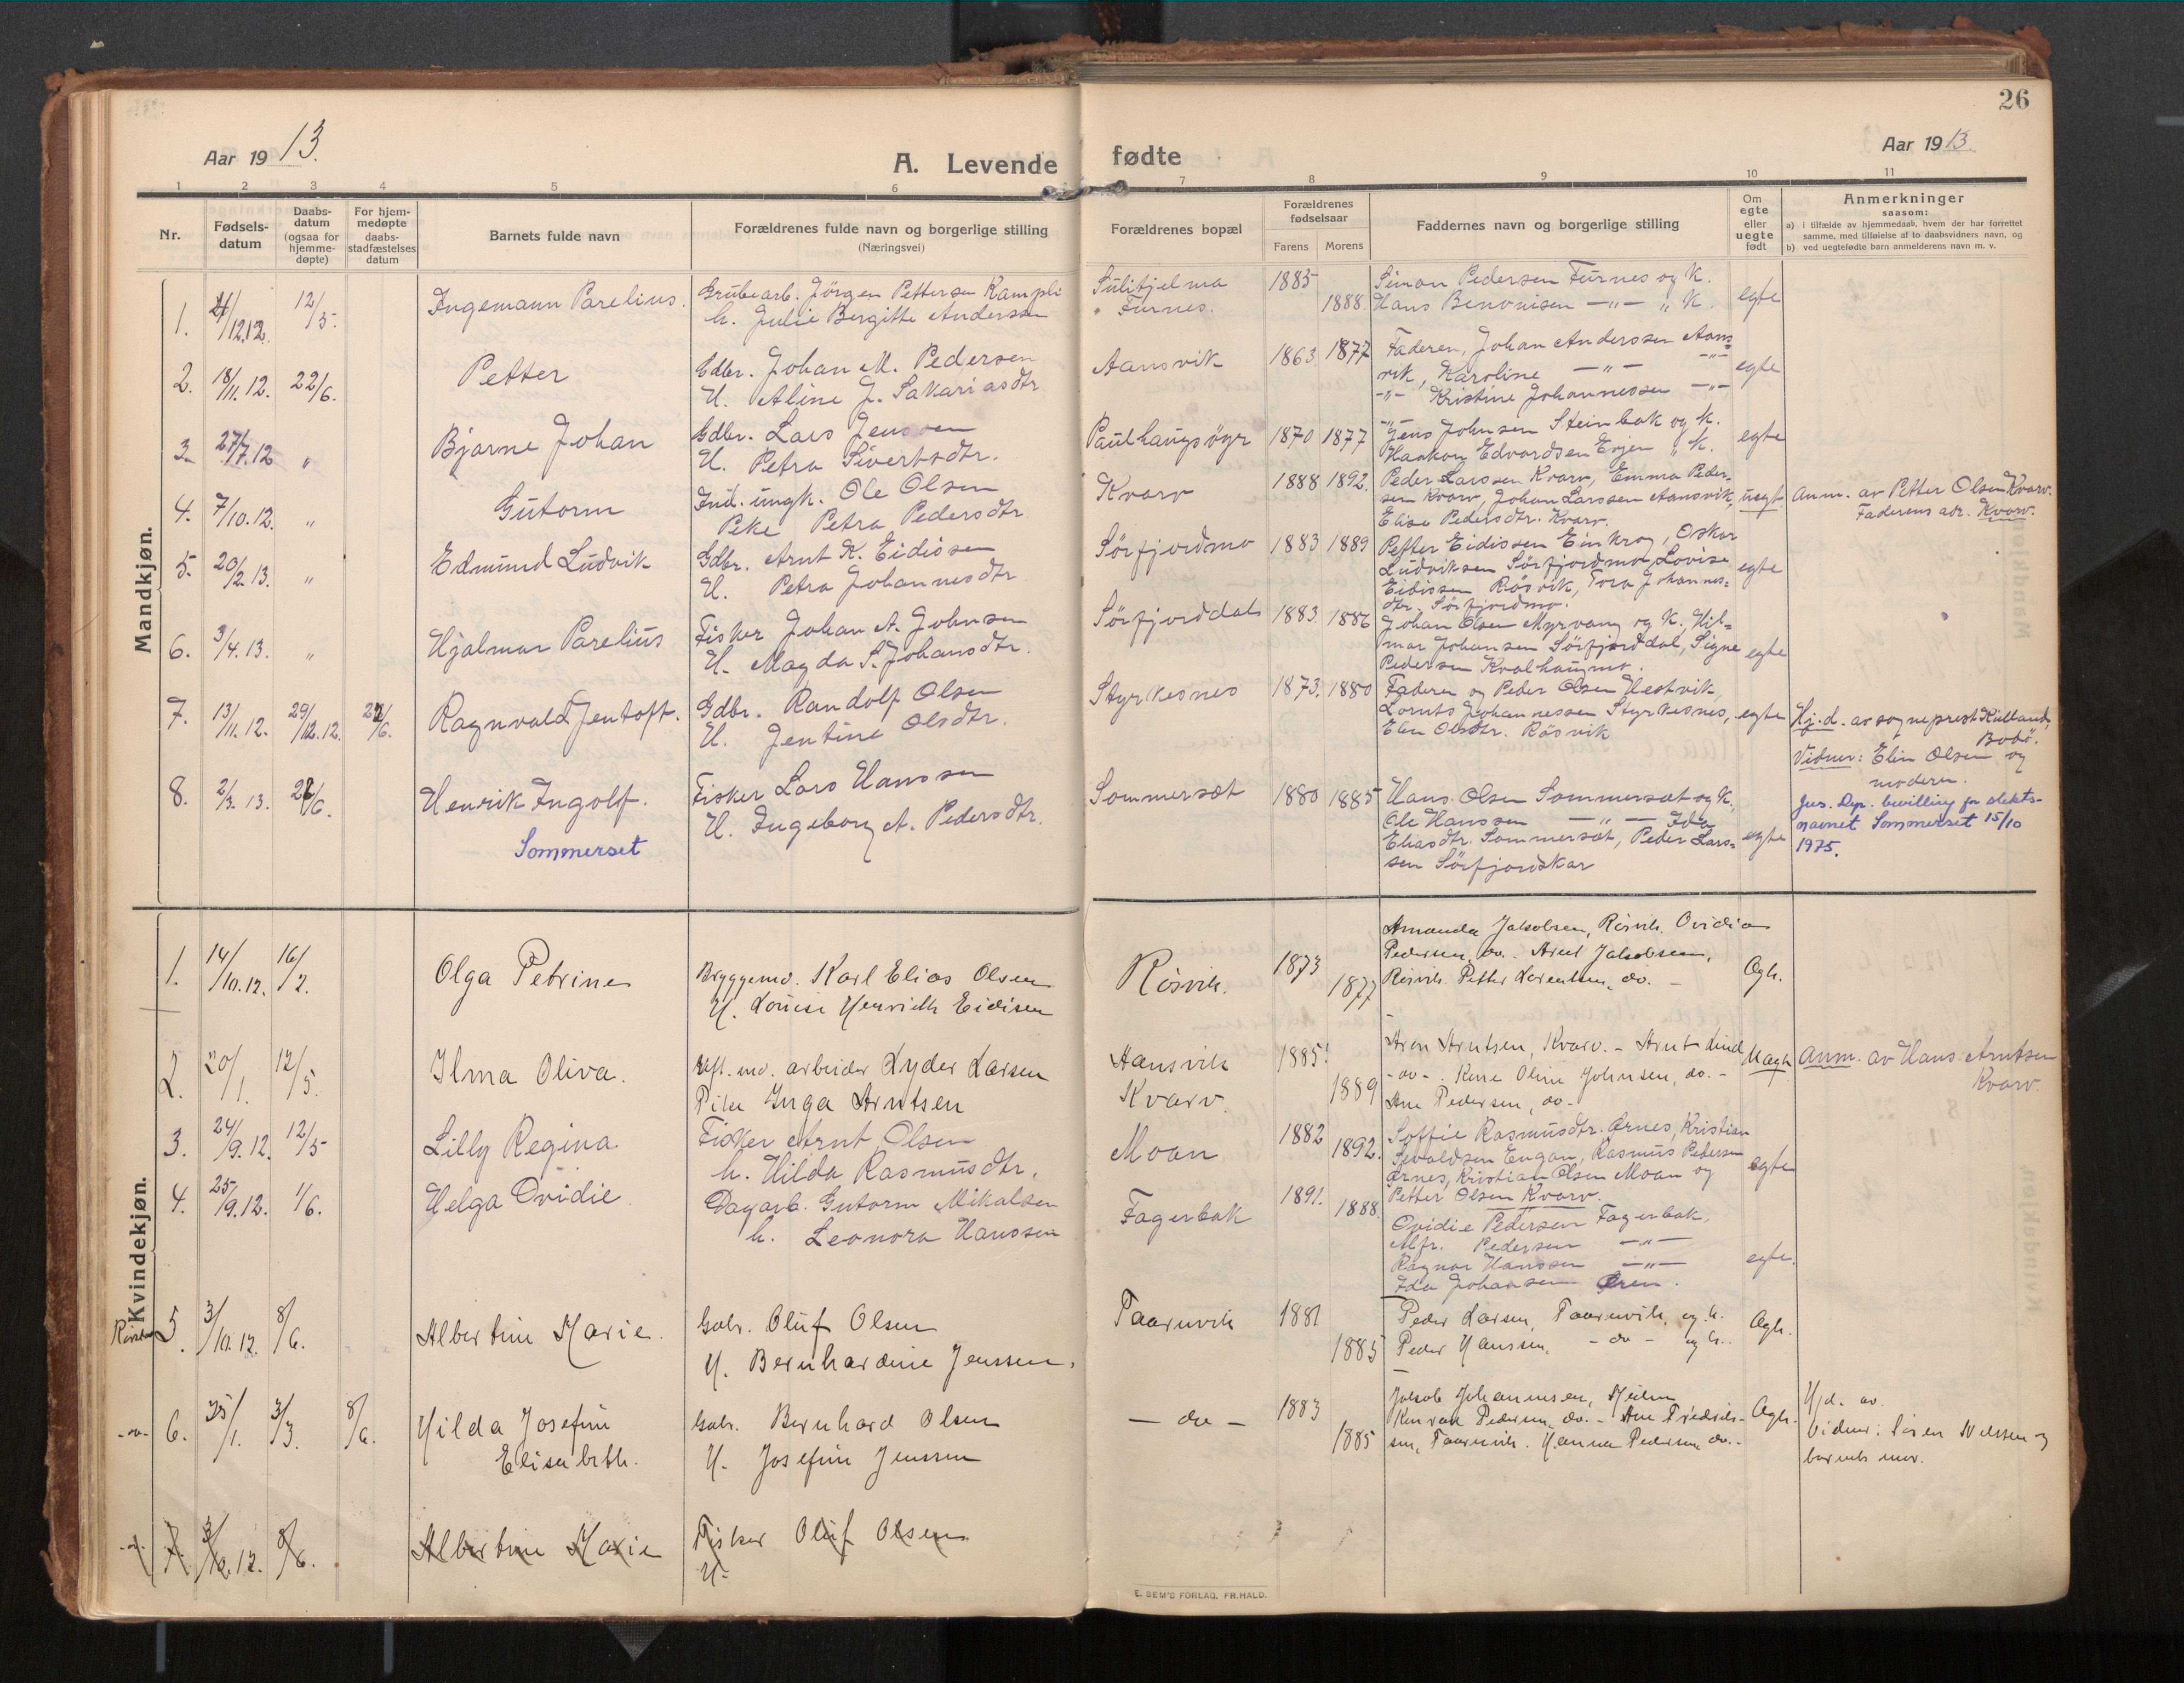 26
Aar 1913.
A. Levende fødte
Aar 1913.
1 2 3 4 5 6 7 8 9 10 11
Nr.
Fødsels-datum
Daabs-datum (ogsaa for hjemme-døpte)
For hjem-medøpte daabs-stadfæstelses datum
Barnets fulde navn
Forældrenes fulde navn og borgerlige stilling
(Næringsvei)
Forældrenes bopæl
Forældrenes fødselsaar
Farens Morens
Faddernes navn og borgerlige stilling
Om egte eller uegte født
Anmerkninger
saasom:
a) i tilfælde av hjemmedaab, hvem der har forrettet
samme, med tilføielse af to daabsvidners navn, og
b) ved uegtefødte barn anmelderens navn m. v.
Mandkjøn.
1. /12.12. 12/5. Ingemann Parelius. Grubearb. Jörgen Pettersen Kampli
h. Julie Bergitte Anderssen
Sulitjelma
Furnes.
1885 1888.
Simon Pedersen Furnes og K.
Hans Benonisen —"— " K.
egte
2. 18/11.12. 22/6. Petter Gdbr. Johan M. Pedersen
H. Aline J. Sakariasdtr
Aansvik 1863 1877
Faderen, Johan Anderssen Aans-
vik, Karoline —"— —"—
—"— Kristine Johannessen —"—
egte
3. 27/7.12 " Bjarne Johan Gdbr. Lars Jenssen
H. Petra Sivertsdtr.
Paulhaugsöyr 1870 1877
Jens Johnsen Steinbak og K.
Haakon Edvardsen Evjen " K.
egte
4. 7/10.12. " Gutorm Ind. ungk. Ole Olsen
Pike Petra Pedersdtr.
Kvarv 1888 1892.
Peder Larssen Kvarv, Emma Peder-
sen Kvarv, Johan Larssen Aansvik,
Elise Pedersdtr. Kvarv.
uegt.
Anm. av Petter Olsen Kvarv.
Faderens adr. Kvarv.
5. 20/2.13. " Edmund Ludvik Gdbr. Arnt K. Eidissen
H. Petra Johannesdtr.
Sörfjordmo 1883 1889
Petter Eidissen Einkrog, Oskar
Ludviksen Sörfjordmo, Lovise
Eidissen Rösvik, Tora Johannes=
dtr. Sörfjordmo.
egte
6. 3/4.13. " Hjalmar Parelius Fisker Johan A. Johnsen
H. Magda S. Johansdtr.
Sörfjorddal 1883. 1886
Johan Olsen Myrvang og K., Hil=
mar Johansen Sörfjorddal, Signe
Pedersen Kvalhaugmo.
egte
7. 13/11.12. 29/12.12. /6. Ragnvald Jentoft. Gdbr. Randolf Olsen
H. Jentine Olsdtr.
Styrkesnes 1873. 1880
Faderen og Peder Olsen Hestvik,
Lornts Johannessen Styrkesnes,
Elen Olsdtr. Rösvik
egte
Hj.d. av sogneprest Kulland,
Bodö.
Vidner: Elin Olsen og
moderen.
8. 2/3.13. /6. Henrik Ingolf. Fisker Lars Hanssen
H. Ingeborg A. Pedersdtr.
Sommerset
Sommersæt 1880 1885
Hans Olsen Sommersæt og K.,
Ole Hanssen —"— Ida
Eliasdtr. Sommersæt, Peder Lars=
sen Sörfjordskar
egte
Jus. Dep. bevilling for slekts-
navnet Sommerset 15/10
1975.
Kvindekjøn.
1. 14/10.12. 16/2. Olga Petrine Bryggemd. Karl Elias Olsen
H. Louise Henrikk Eidisen
Rösvik. 1873 1877
Amanda Jakobsen, Rösvik. Ovidia
Pedersen, do. Arnt Jakobsen,
Rösvik. Petter Lorentsen, do. —
Ægt.
2. 20/1. 12/5. Ilma Oliva. arbeider Lyder Larsen
Pike Inga Arntsen
Aansvik
Kvarv.
1885. 1889
Aron Arntsen, Kvarv. - Arnt Lind
-do-. Oline Johnsen, do. -
Ane Pedersen, do-
Uægt.
Anm. av Hans Arntsen
Kvarv.
3. 24/9.12. 12/5 Lilly Regina. Fisker Arnt Olsen
h. Hilda Rasmusdtr.
Moan 1882 1892.
Soffie Rasmusdtr. Ørnes, Kristian
Sevaldsen Engan, Rasmus Pedersen
Ørnes, Kristian Olsen Moan og
Petter Olsen Kvarv.
egte
4. 25/9.12. 1/6. Helga Ovidie Dagarb. Gutorm Mikalsen
h. Leonora Hanssen
Fagerbak 1891. 1888.
Ovidie Pedersen Fagerbak,
Alfr. Pedersen —"—
Ragnar Hanssen —"—
Ida Johansen Øren.
egte.
5. 3/10.12. 8/6. Albertine Marie. Gdbr. Oluf Olsen
H. Bernhardine Jenssen.
Taarnvik 1881 1885
Peder Larsen, Taarnvik, og h.
Peder Hanssen, -do- og h.
Ægt.
-do- 6. 25/1. 3/3. 8/6. Hilda Josefine
Elisabeth.
Gdbr. Bernhard Olsen
H. Josefine Jenssen
— do — 1883 1885
Jakob Johannesen,
Konrad Pedersen, do. - Ane Fredrik-
sen, Taarnvik. Hanna Pedersen do.-
Ægt.
Hjd. av
Vidner: Sören Nilssen og
barnets mor.
-do- 7. 3/10.12. 8/6. Albertine Marie Fisker Oluf Olsen
H.
E. SEM'S FORLAG, FR.HALD.